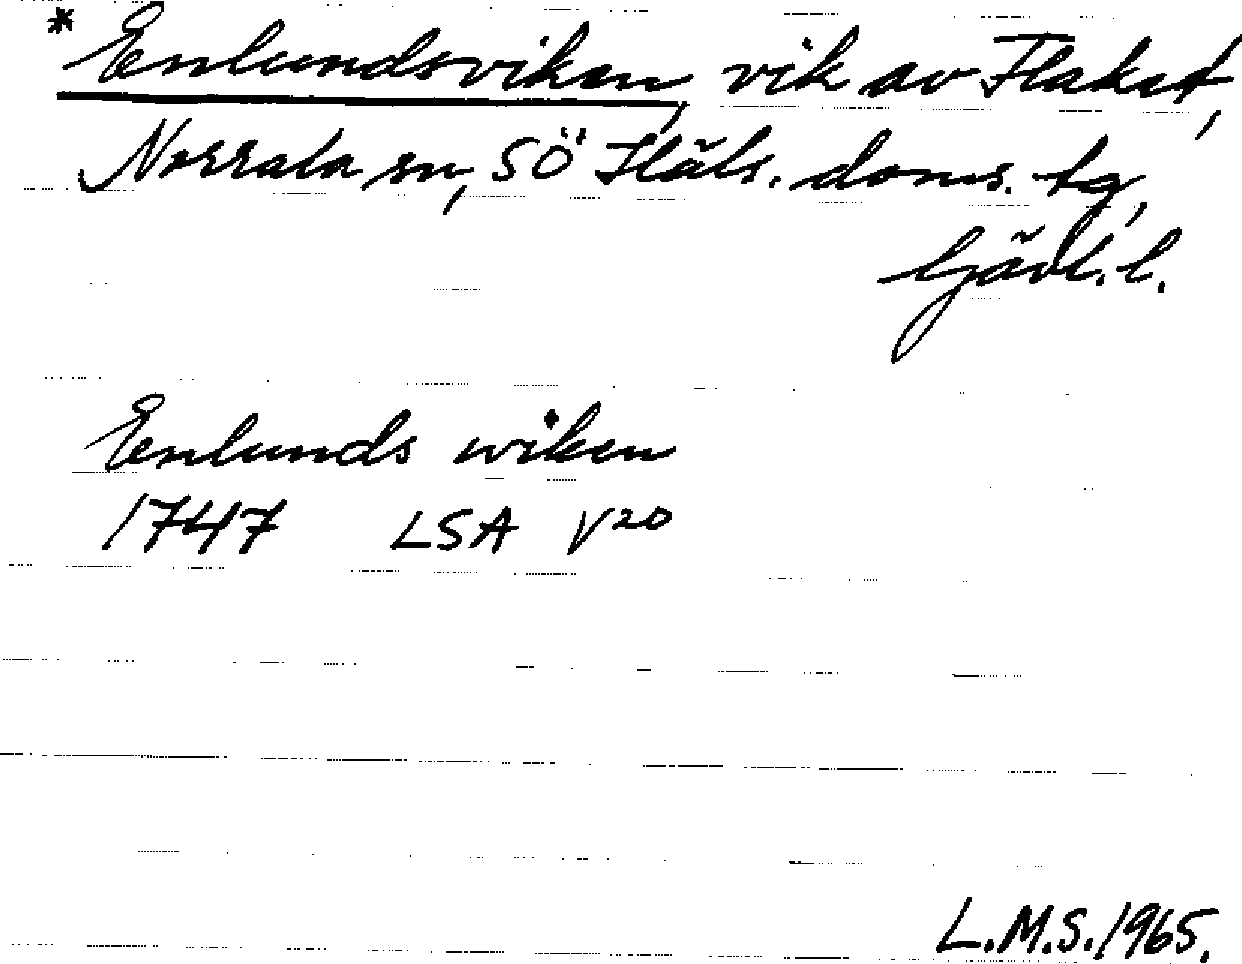 *Enlundsviken, vik av Flaket,
Norrala sn, SÖ Häls. doms. tg,
Gävl. l.
Enlunds wiken
1747 LSA V20
L.M.S. 1965.